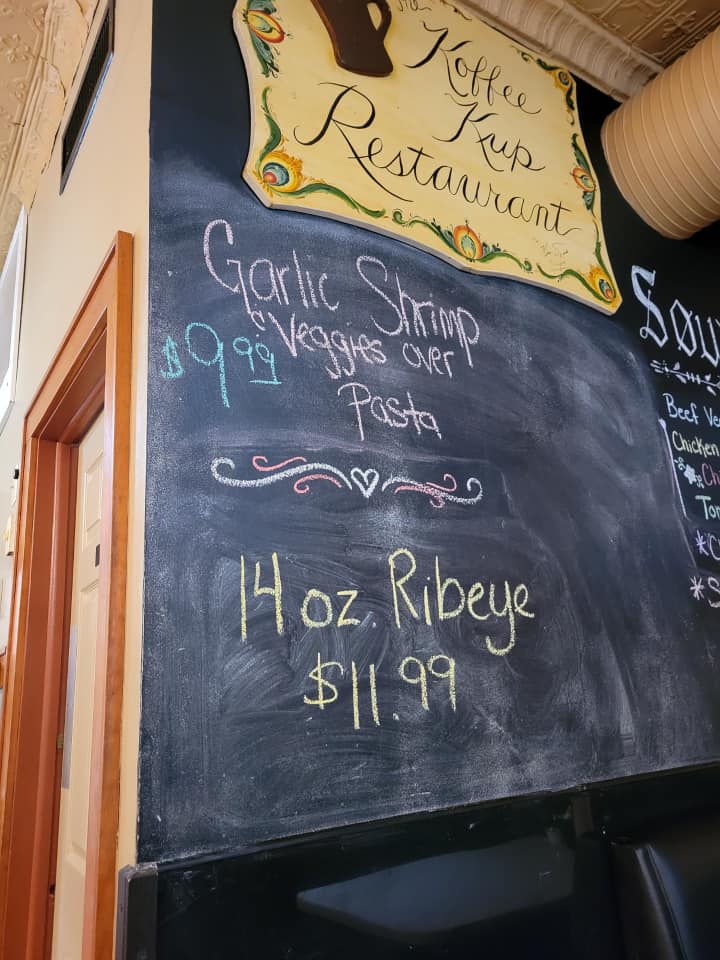 The
Koffee
Kup
Restaurant
Garlic Shrimp
& Veggies over
Pasta
$9.99
14 oz. Ribeye
$11.99
Beef
Chicken